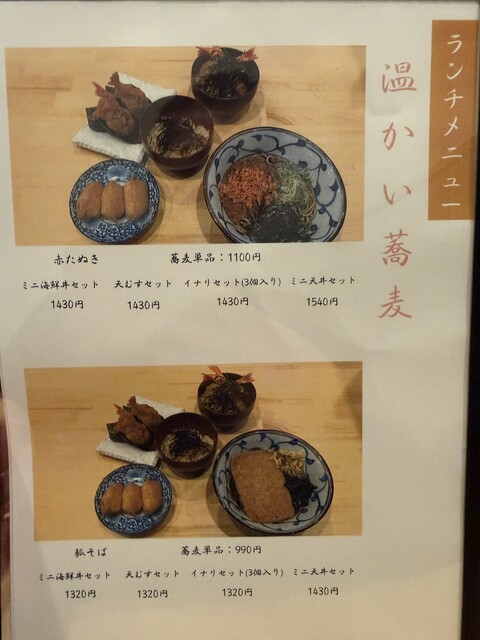 ランチメニュー
温かい蕎麦
赤たぬき 蕎麦単品:1100円
ミニ海鮮丼セット 天むすセット イナリセット(3個入り) ミニ天丼セット
1430円 1430円 1430円 1540円
狐そば 蕎麦単品:990円
ミニ海鮮丼セット 天むすセット イナリセット(3個入り) ミニ天丼セット
1320円 1320円 1320円 1430円